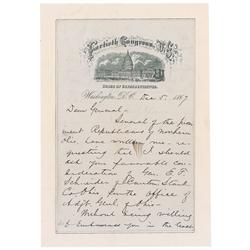 Fortieth Congress, U.S.
HOUSE OF REPRESENTATIVES.
Washington, D.C. Dec 5, 1867
Dear General—
Several of the prom-
inent Republicans of Northern
Ohio, have written me, re-
questing that I should
ask your favorable con-
sideration of Gen.
of Canton Stark
Co Ohio, for the office of
Adjt. Genl. of Ohio—
Without being willing
to embarrass you in the least